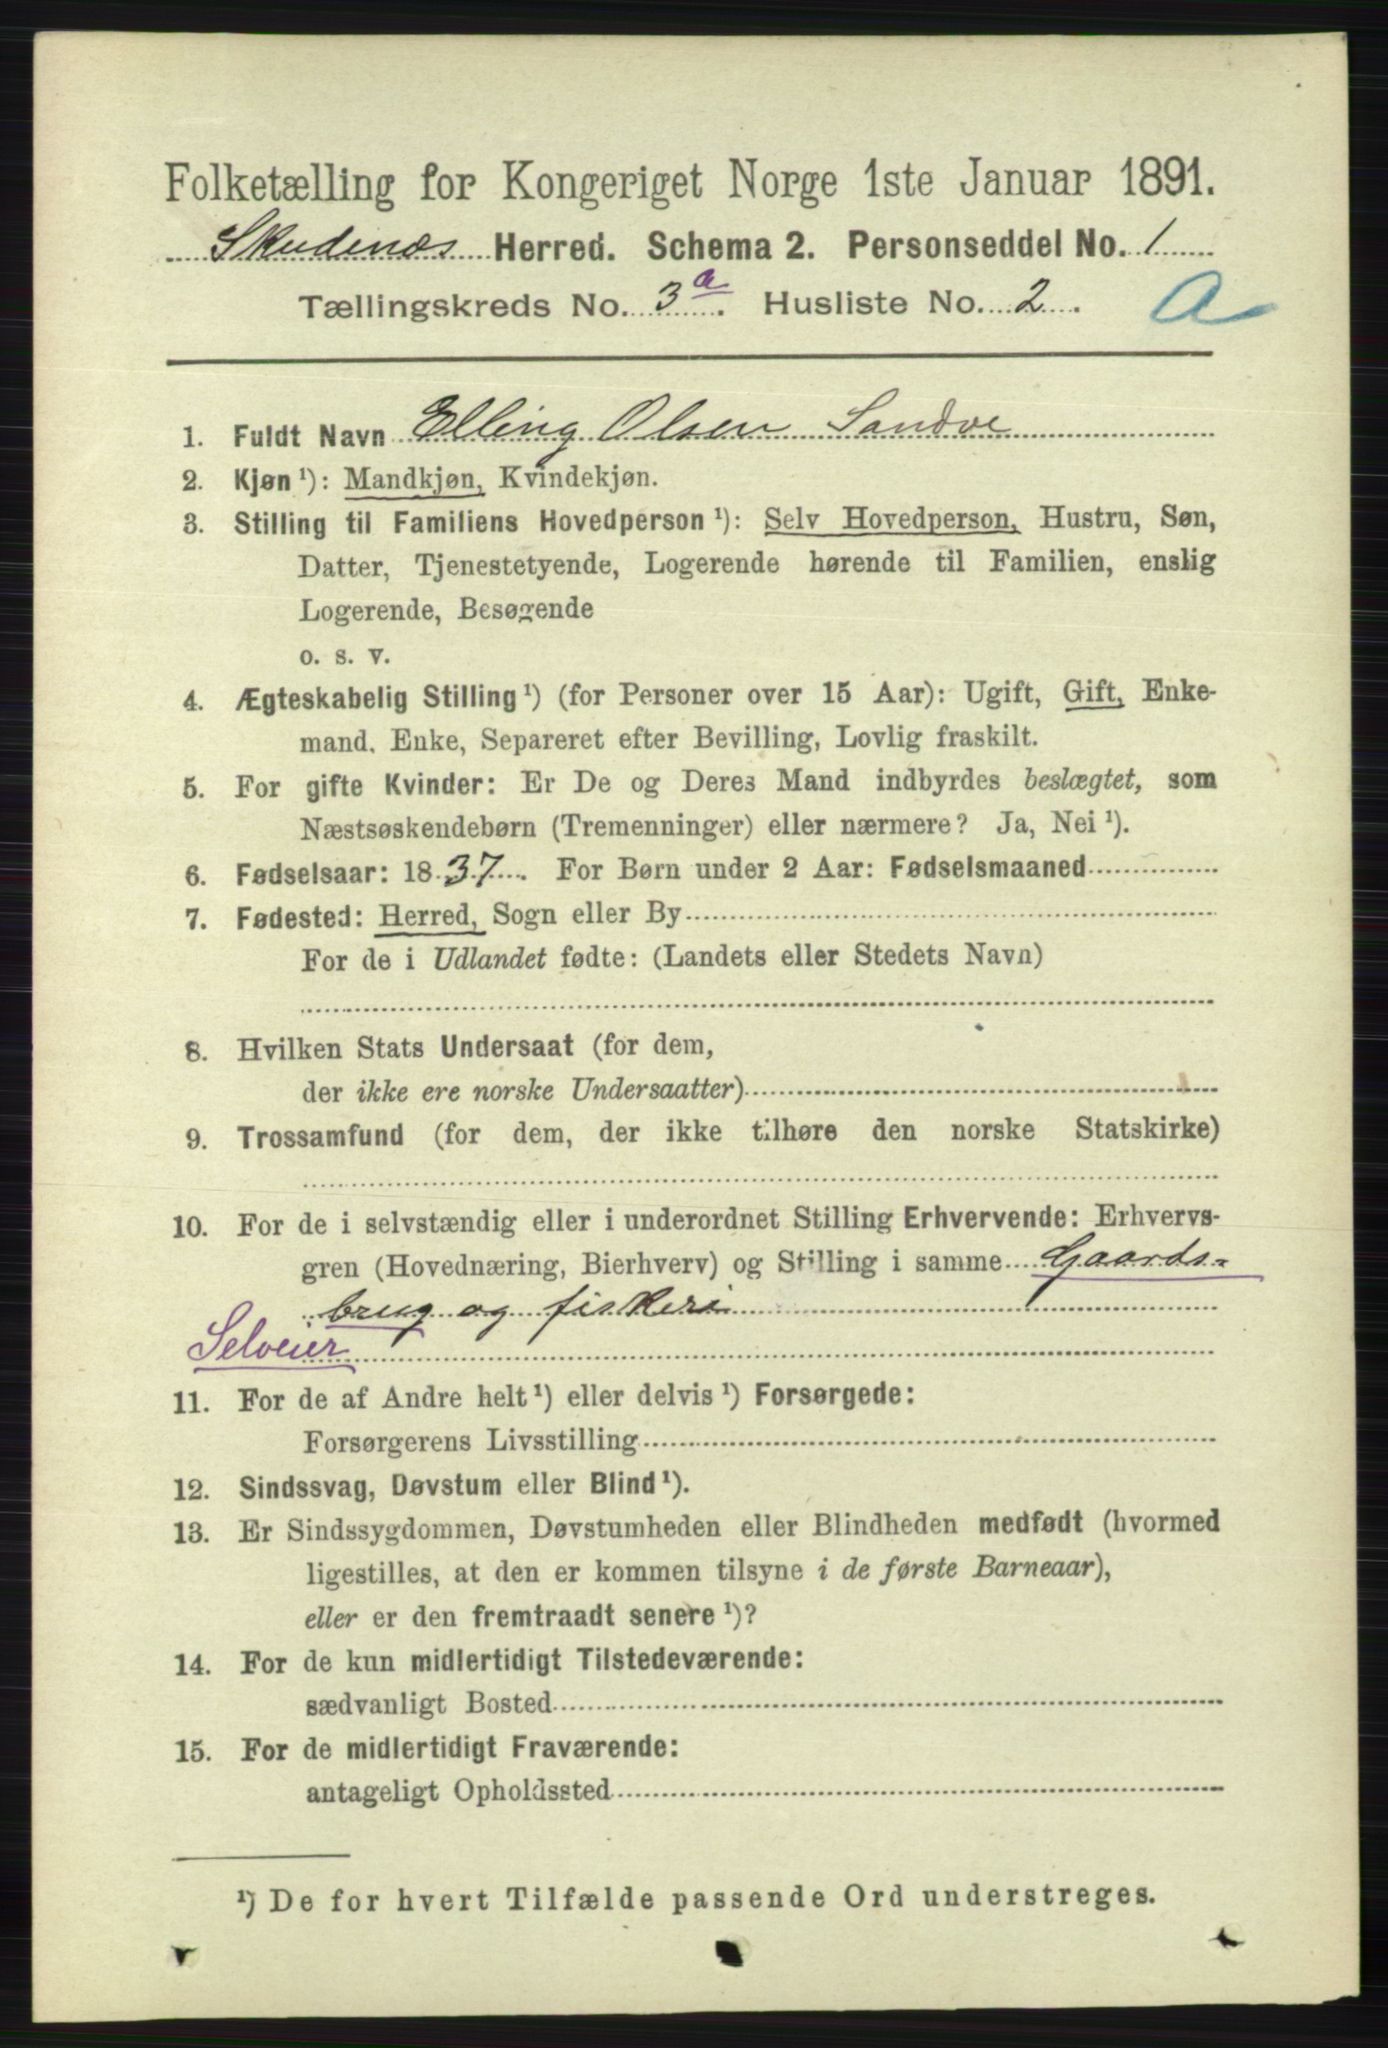 Folketælling for Kongeriget Norge 1ste Januar 1891.
Skudenæs Herred. Schema 2. Personseddel No. 1
Tællingskreds No. 3 a. Husliste No. 2. A
1. Fuldt Navn Elling Olsen Sandve
2. Kjøn ¹): Mandkjøn, Kvindekjøn.
3. Stilling til Familiens Hovedperson ¹): Selv Hovedperson, Hustru, Søn,
Datter, Tjenestetyende, Logerende hørende til Familien, enslig
Logerende, Besøgende
o. s. v.
4. Ægteskabelig Stilling ¹) (for Personer over 15 Aar): Ugift, Gift, Enke-
mand, Enke, Separeret efter Bevilling, Lovlig fraskilt.
5. For gifte Kvinder: Er De og Deres Mand indbyrdes beslægtet, som
Næstsøskendebørn (Tremenninger) eller nærmere? Ja, Nei ¹).
6. Fødselsaar: 1837. For Børn under 2 Aar: Fødselsmaaned
7. Fødested: Herred, Sogn eller By
For de i Udlandet fødte: (Landets eller Stedets Navn)
8. Hvilken Stats Undersaat (for dem,
der ikke ere norske Undersaatter)
9. Trossamfund (for dem, der ikke tilhøre den norske Statskirke)
10. For de i selvstændig eller i underordnet Stilling Erhvervende: Erhvervs-
gren (Hovednæring, Bierhverv) og Stilling i samme Gaards-
brug og fiskeri
Selveier
11. For de af Andre helt ¹) eller delvis ¹) Forsørgede:
Forsørgerens Livsstilling
12. Sindssvag, Døvstum eller Blind ¹).
13. Er Sindssygdommen, Døvstumheden eller Blindheden medfødt (hvormed
ligestilles, at den er kommen tilsyne i de første Barneaar),
eller er den fremtraadt senere ¹)?
14. For de kun midlertidigt Tilstedeværende:
sædvanligt Bosted
15. For de midlertidigt Fraværende:
antageligt Opholdssted
¹) De for hvert Tilfælde passende Ord understreges.